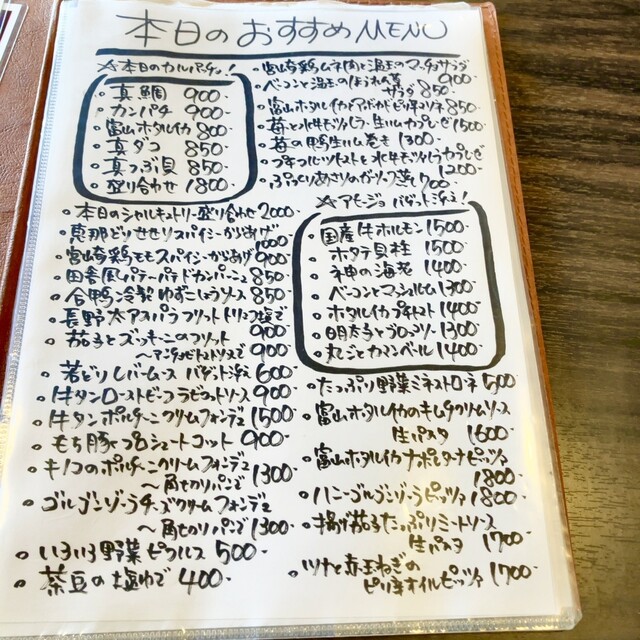 本日のおすすめMENU
☆本日のカルパッチョ!
・真鯛 900-
・カンパチ 900-
・富山ホタルイカ 800-
・真ダコ 850-
・真つぶ貝 850-
・盛り合わせ 1800-
・本日のシャルキュトリー盛り合わせ 2000-
・恵那どりせせりスパイシーからあげ
1000-
・宮崎鶏ももスパイシーからあげ 900-
・田舎風パテ パテドカンパーニュ 850-
・合鴨冷製 ゆずこしょうソース 850-
・長野太アスパラフリット トリュフ塩で
900-
・茄子とズッキーニのフリット
〜アンチョビトマトソースで 900-
・若どりレバームース バゲット添え 600-
・牛タンローストビーフ ラビゴットソース 900-
・牛タンポルチーニクリームフォンデュ 1500-
・もち豚とプロシュートコット 900-
・キノコのポルチーニクリームフォンデュ
〜角切りパンで 1300-
・ゴルゴンゾーラチーズクリームフォンデュ
〜角切りパンで 1300-
・いろいろ野菜ピクルス 500-
・茶豆の塩ゆで 400-
・宮崎鶏ムネ肉と温玉のマッチョサラダ
900-
・ベーコンと温玉のほうれん草
サラダ 850-
・富山ホタルイカとアボカドピリ辛マリネ 850-
・苺と水牛モッツァレラ・生ハムカプレーゼ 1500-
・苺の鴨生ハム巻き 1300-
・フルーツトマトと水牛モッツァレラカプレーゼ
1200-
・ぷっくりあさりのガーリック蒸し 700-
☆アヒージョ バゲット添え!
・国産牛ホルモン 1500-
・ホタテ貝柱 1500-
・神の海老 1400-
・ベーコンとマッシュルーム 1300-
・ホタルイカプチトマト 1400-
・明太子とブロッコリー 1300-
・丸ごとカマンベール 1400-
・たっぷり野菜ミネストローネ 500-
・富山ホタルイカのキムチクリームソース
生パスタ 1600-
・富山ホタルイカナポレターナピッツァ
1800-
・ハニーゴルゴンゾーラピッツァ 1800-
・揚げ茄子たっぷりミートソース
生パスタ 1700-
・ツナと赤玉ねぎの
ピリ辛オイルピッツァ 1700-